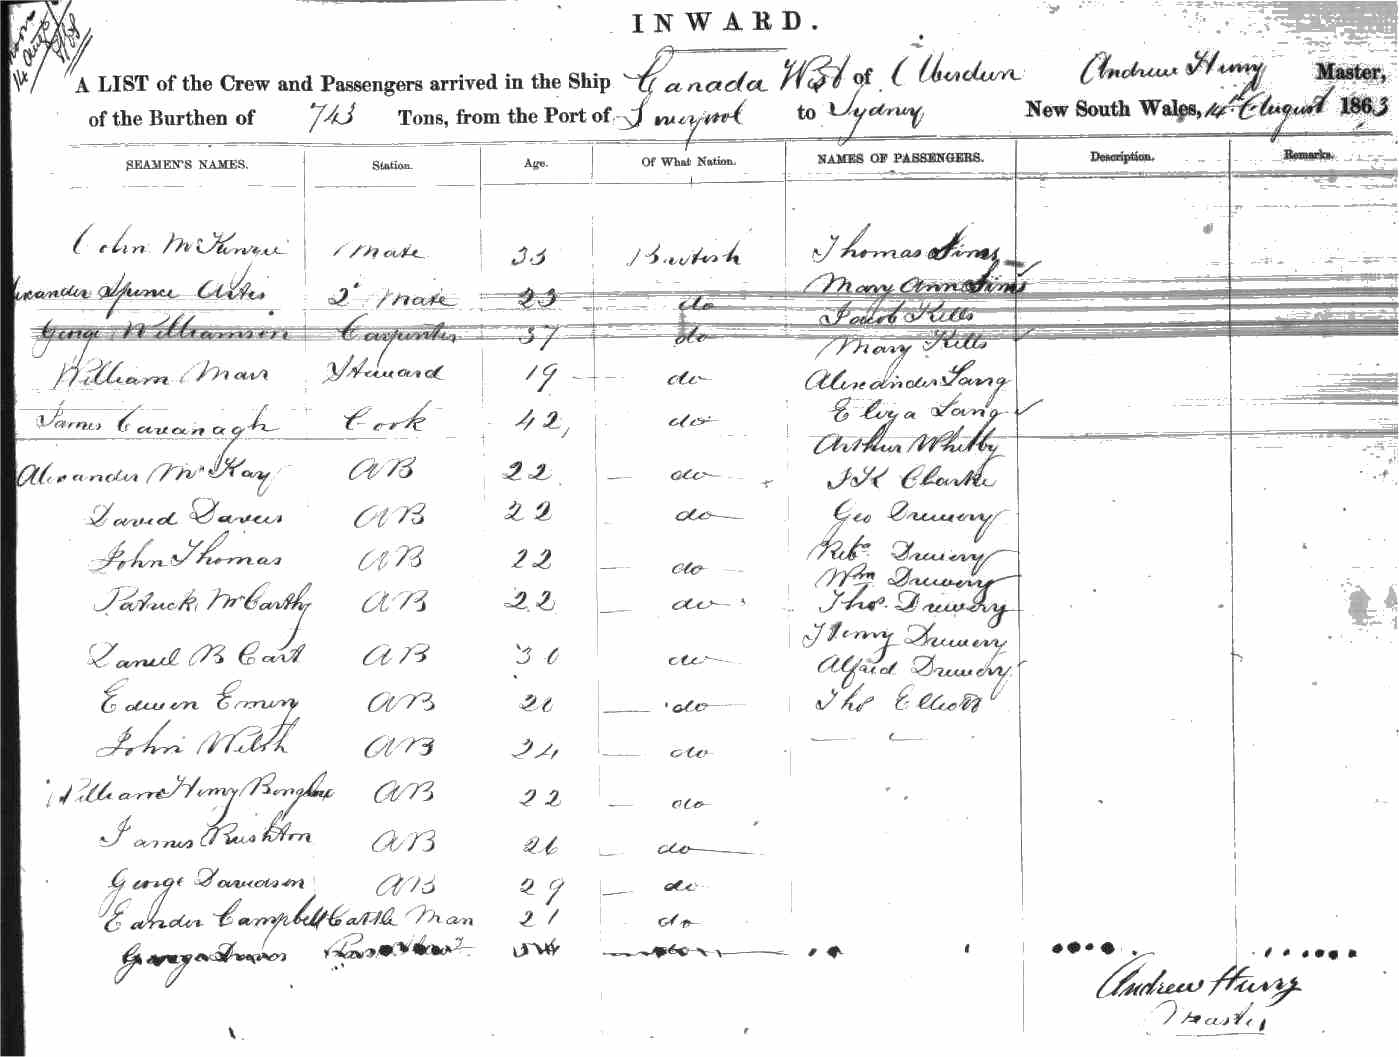 14 Aug
INWARD.
A LIST of the Crew and Passengers arrived in the Ship Canada West of Aberdeen Andrew Hurry Master,
of the Burthen of 743 Tons, from the Port of Liverpool to Sydney New South Wales, 14th August 1863
SEAMEN'S NAMES. Station. Age. Of What Nation. NAMES OF PASSENGERS. Description. Remarks.
John McKenzie Mate 33 British Thomas Sims
Spence 2d Mate 23 do Mary Ann Sims
George Williamson Carpenter 37 do Jacob Kells
Mary Kells
William Marr Steward 19 do Alexander Lang
James Cavanagh Cook 42 do Eliza Lang
Arthur Whitby
Alexander McKay AB 22 do J K Clarke
David Davies AB 22 do Geo Drewery
John Thomas AB 22 do Reba Drewery
Wm Drewery
Patrick McCarthy AB 22 do Thos. Drewery
Henry Drewery
Daniel B Cart AB 30 do Alfred Drewery
Edwin Emery AB do Thos Elliott
John Welsh AB 24 do
William Henry AB 22 do
James Rushton AB 26 do
George Davidson AB 29 do
Campbell Cattle Man 21 do
George do
Andrew Hurry
Master